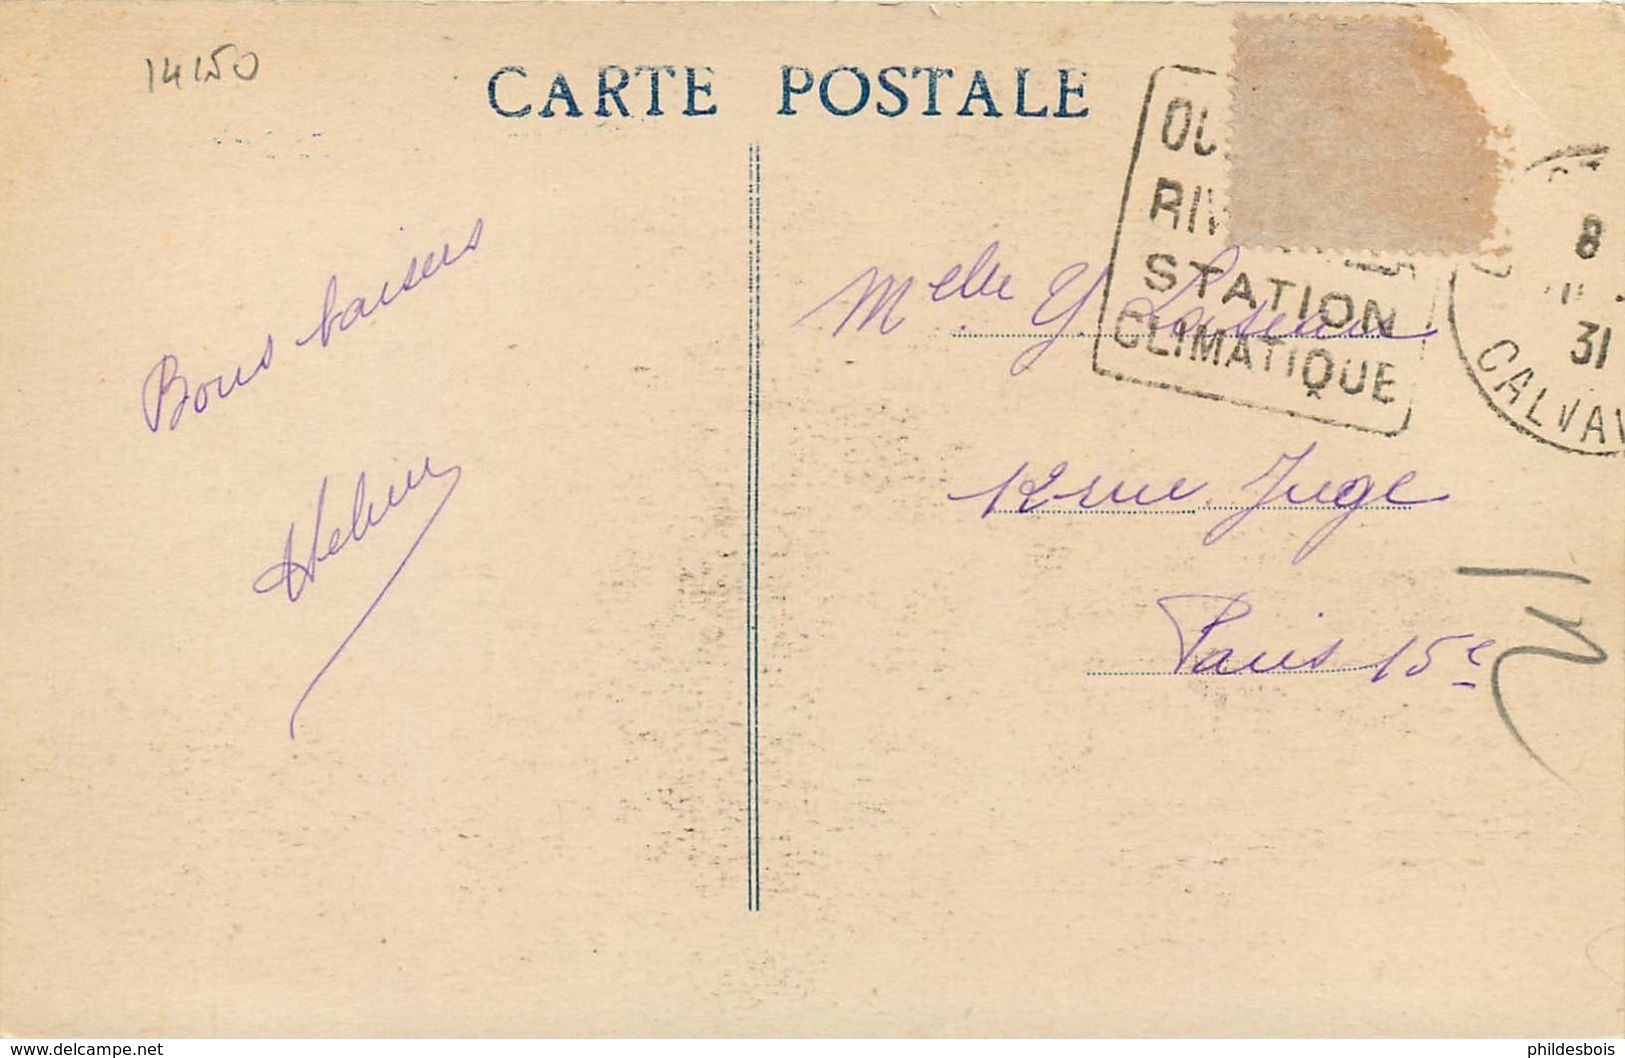 14150
CARTE POSTALE
OU
RIV
STATION
CLIMATIQUE
8
31
CALVA
Bons baisers
Melle Y.
12 rue Juge
Paris 15e
www.delcampe.net
phildesbois